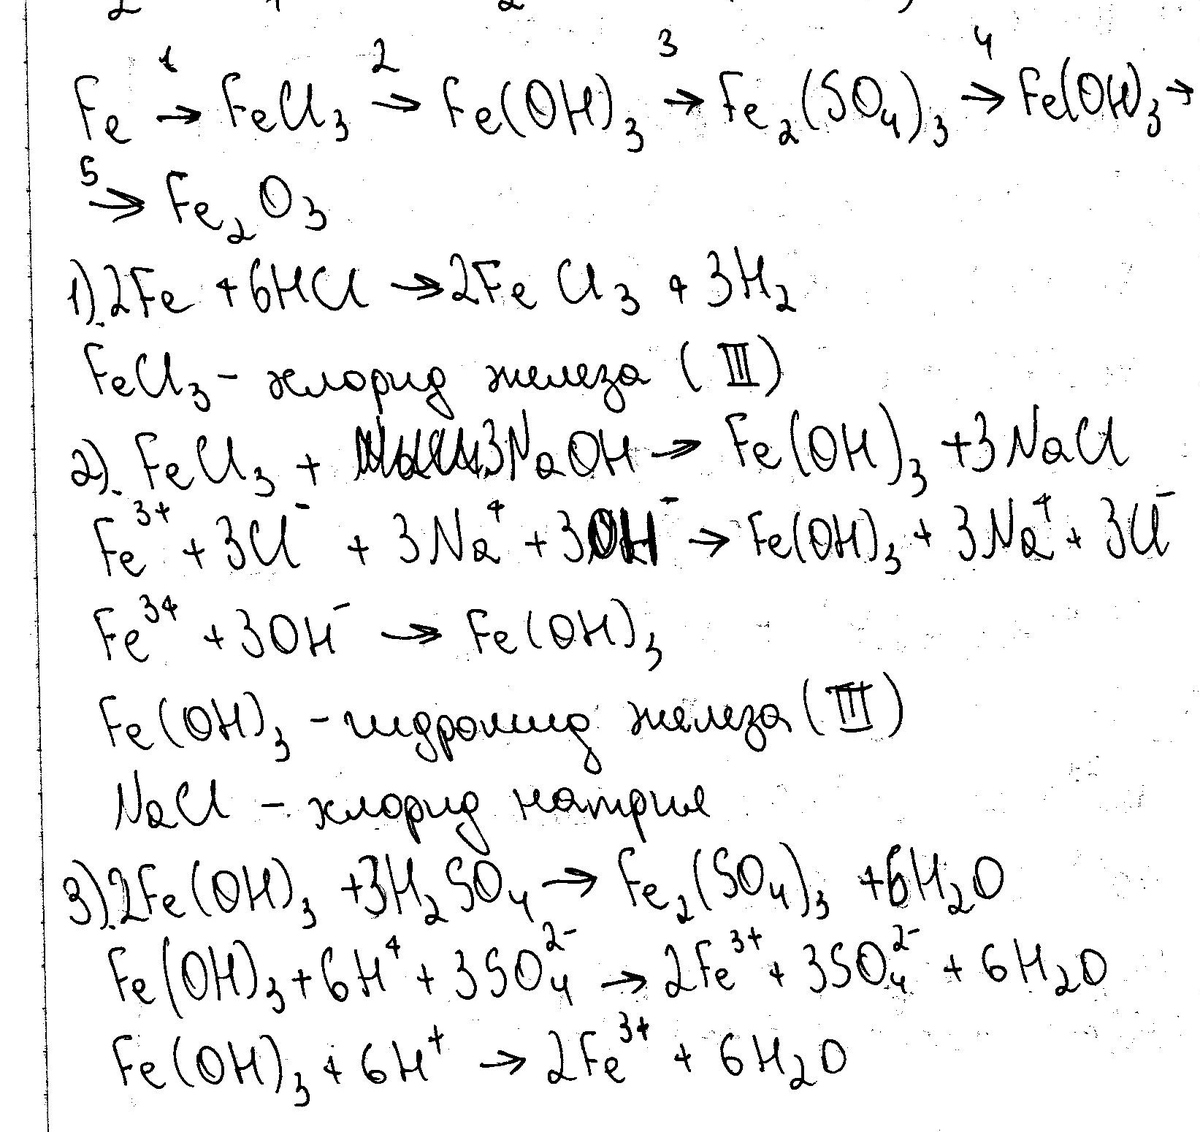 Fe →¹ FeCl₃ →² Fe(OH)₃ →³ Fe₂(SO₄)₃ →⁴ Fe(OH)₃ →
→⁵ Fe₂O₃
1). 2Fe + 6HCl → 2FeCl₃ + 3H₂
FeCl₃ - хлорид железа (III)
2). FeCl₃ + 3NaOH → Fe(OH)₃ + 3NaCl
Fe³⁺ + 3Cl⁻ + 3Na⁺ + 3OH⁻ → Fe(OH)₃ + 3Na⁺ + 3Cl⁻
Fe³⁺ + 3OH⁻ → Fe(OH)₃
Fe(OH)₃ - гидроксид железа (III)
NaCl - хлорид натрия
3). 2Fe(OH)₃ + 3H₂SO₄ → Fe₂(SO₄)₃ + 6H₂O
Fe(OH)₃ + 6H⁺ + 3SO₄²⁻ → 2Fe³⁺ + 3SO₄²⁻ + 6H₂O
Fe(OH)₃ + 6H⁺ → 2Fe³⁺ + 6H₂O